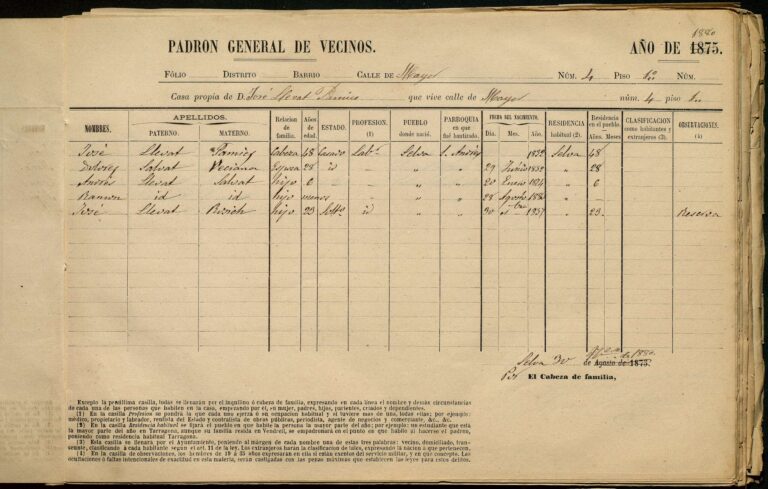 1880
PADRON GENERAL DE VECINOS. AÑO DE 1875.
FÓLIO DISTRITO BARRIO CALLE DE Mayor NÚM. 4 PISO NÚM.
Casa propia de D. José Llevat Pamies que vive calle de Mayor núm. 4 piso
NOMBRES. APELLIDOS. PATERNO. MATERNO. Relacion de familia. Años de edad ESTADO. PROFESION. (1) PUEBLO donde nació. PARROQUIA en que fué bautizado. FECHA DEL NACIMIENTO. Dia. Mes. Año. RESIDENCIA habitual (2) Residencia en el pueblo. Años. Meses CLASIFICACION como habitantes y extranjeros (3). OBSERVACIONES. (4)
José Llevat Pamies Cabeza 48 Casado Lab. Selva S. Andrés 1832 Selva 48
Salvat Veciana Esposa 28 id " " 29 1852 " 28
Andrés Llevat Salvat hijo 6 " " 20 Enero 1874 " 6
Ramon id id hijo menos " " 28 Agosto 1880 " -
José Llevat hijo 23 Solto id " " 30 1857 " 23 Reserva
Selva 30 de Agosto de 1875.
de 1880.
El Cabeza de familia,
Excepto la penúltima casilla, todas se llenarán por el inquilino ó cabeza de familia, expresando en cada línea el nombre y demás circunstancias
de cada una de las personas que habiten en la casa, empezando por él, su mujer, padres, hijos, parientes, criados y dependientes.
(1) En la casilla Profesion se pondrá la que cada uno ejerza ó su ocupacion habitual y si tuviere mas de una, todas ellas; por ejemplo:
médico, propietario y labrador, rentista del Estado y contratista de obras públicas, periodista, agente de negocios y comerciante, &c., &c.
(2) En la casilla Residencia habitual se fijará el pueblo en que habite la persona la mayor parte del año; por ejemplo: un estudiante que está
la mayor parte del año en Tarragona, aunque su familia resida en Vendrell, se empadronará en el punto en que habite al hacerse el padron,
poniendo como residencia habitual Tarragona.
(3) Esta casilla se llenará por el Ayuntamiento, poniendo al márgen de cada nombre una de estas tres palabras: vecino, domiciliado, transeunte,
clasificando á cada habitante segun el art. 11 de la ley. Los extranjeros harán la clasificacion de tales, expresando la nacion á que pertenecen.
(4) En la casilla de observaciones, los hombres de 19 á 35 años expresarán en ella si están exentos del servicio militar, y en qué concepto. Las
ocultaciones ó faltas intencionales de exactitud en esta materia, serán castigadas con las penas máximas que establecen las leyes para estos delitos.